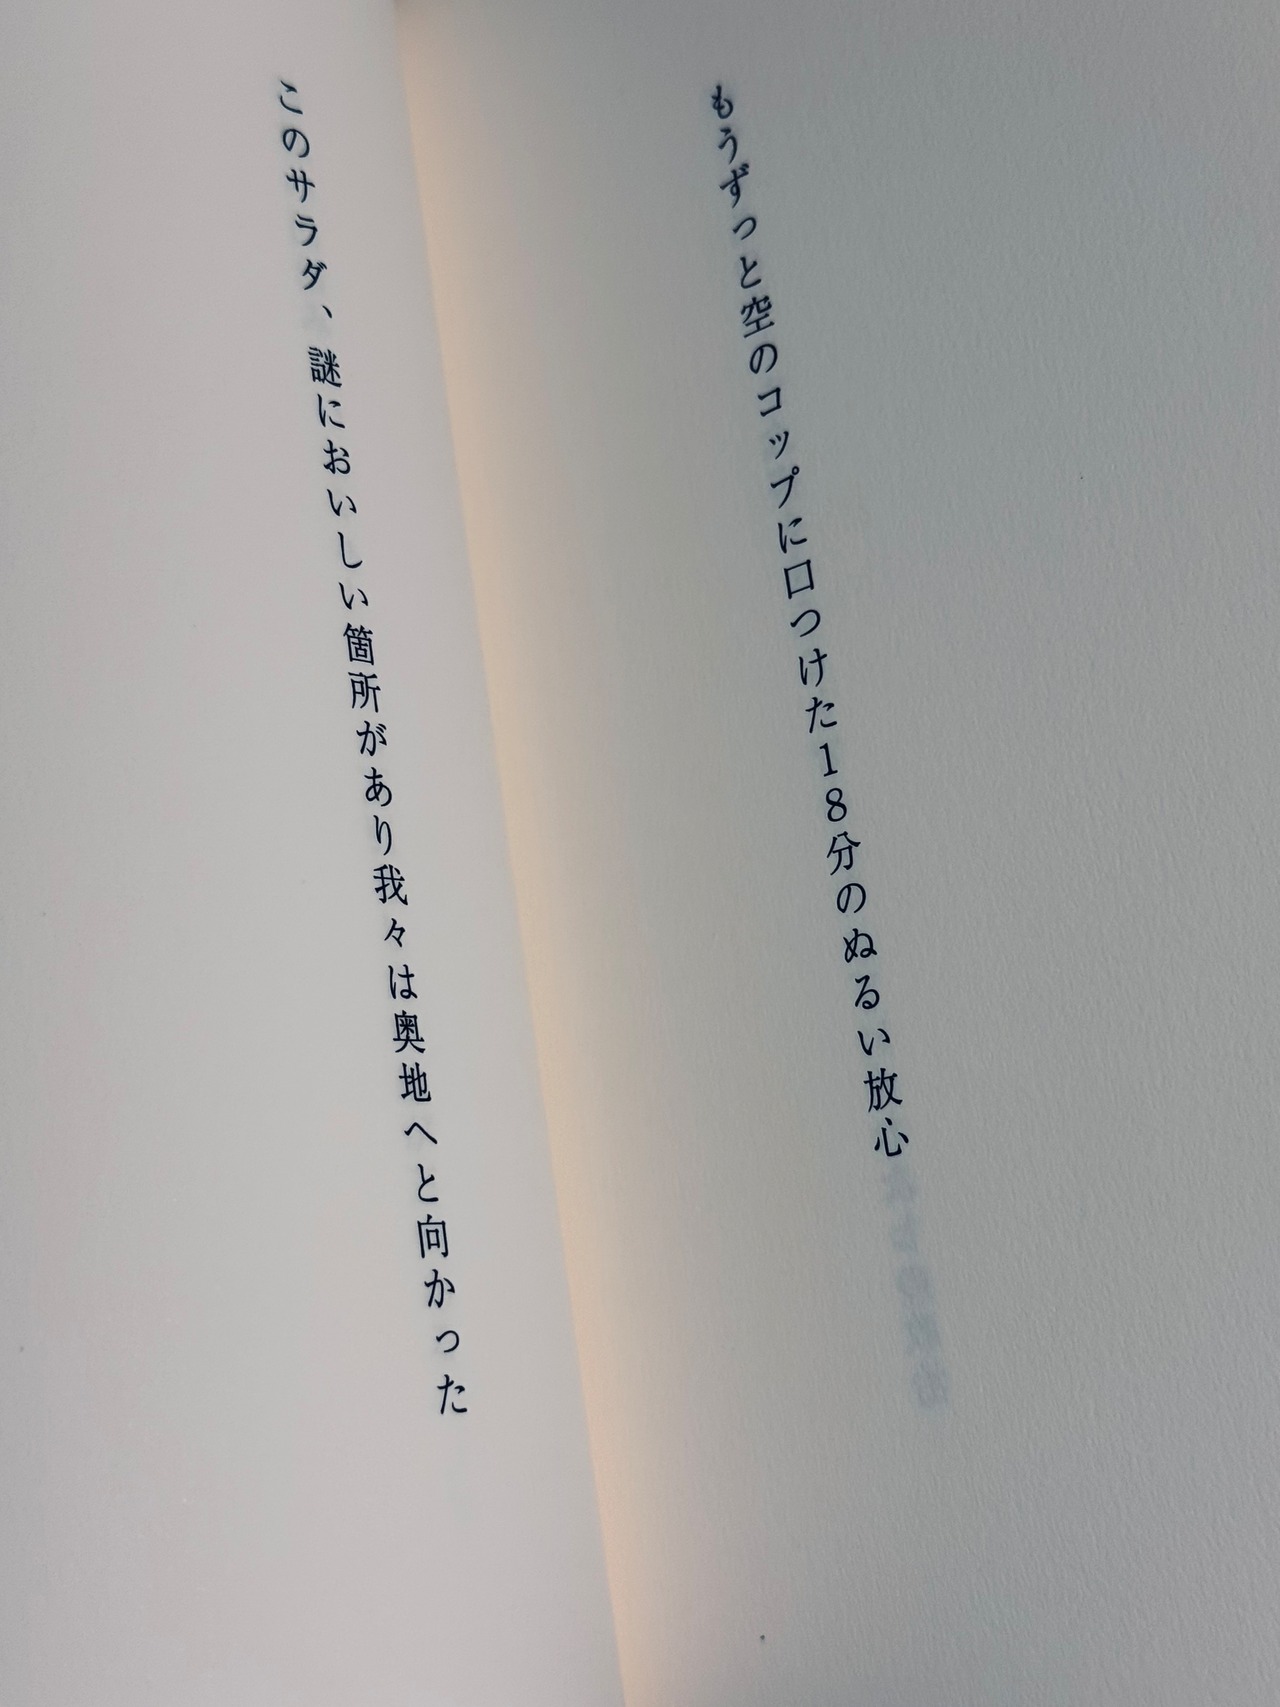 もうずっと空のコップに口つけた18分のぬるい放心
このサラダ、謎においしい箇所があり我々は奥地へと向かった